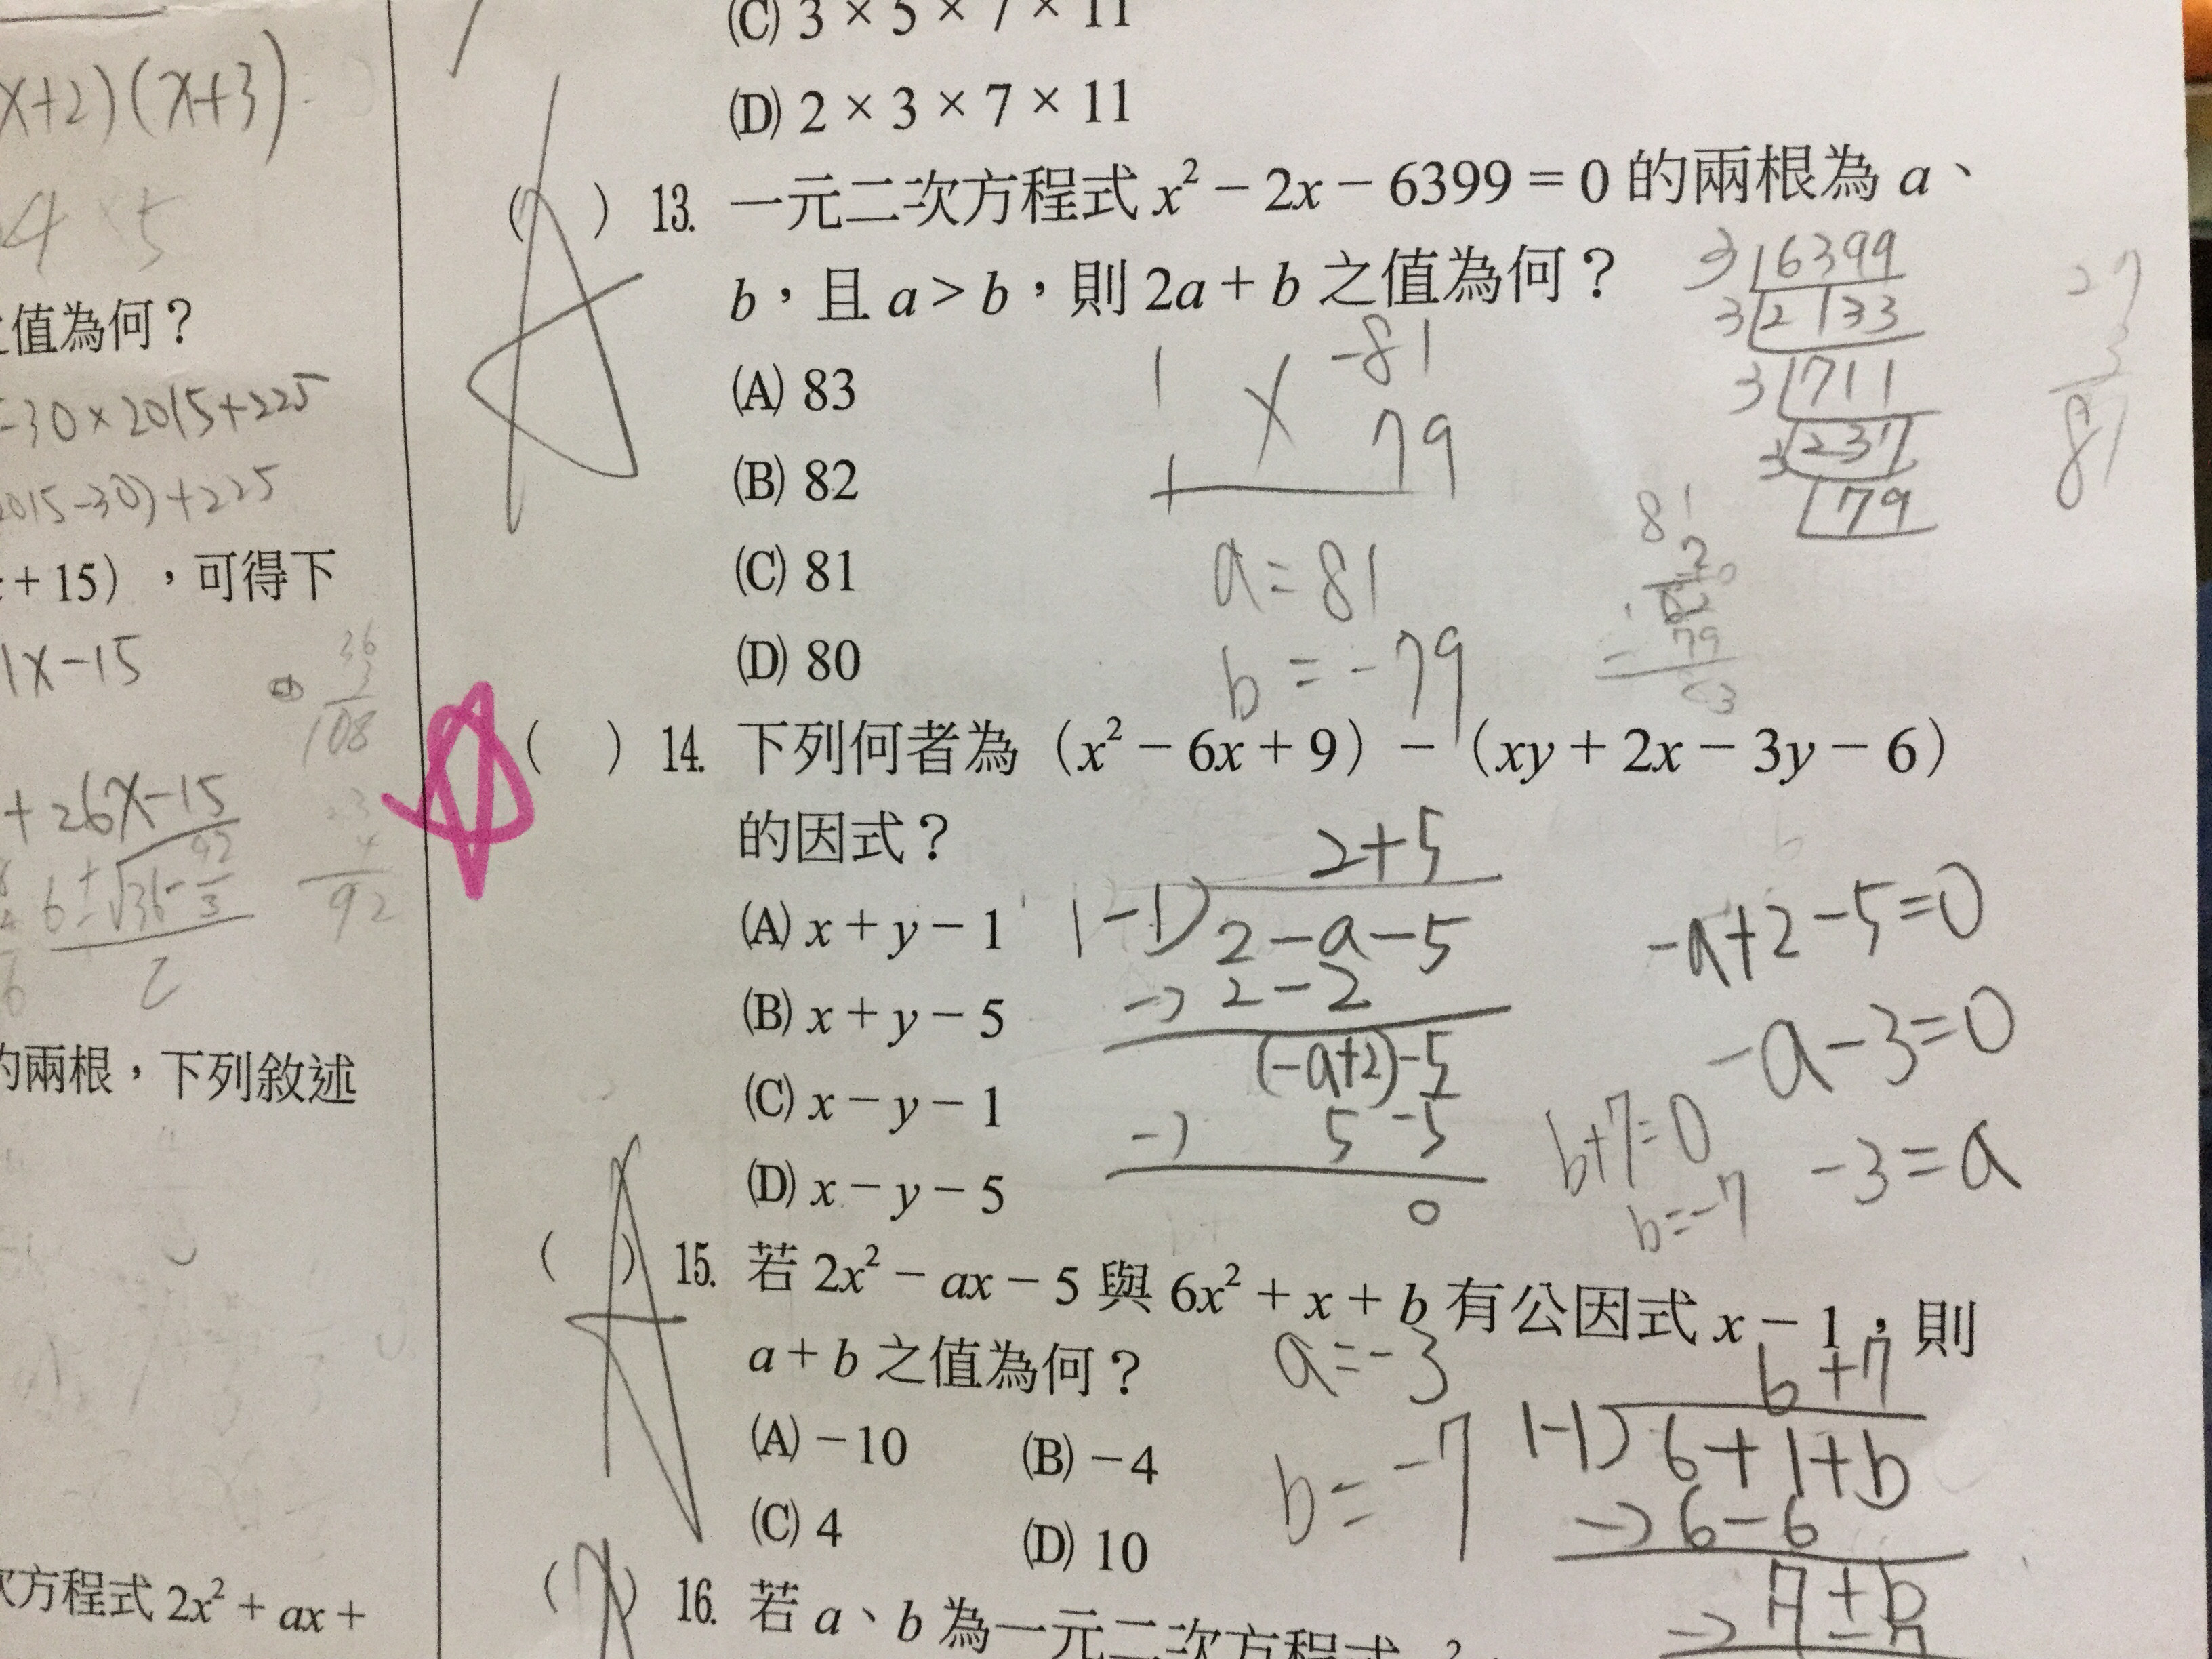 x+2)(x+3)
4 × 5
值為何？
-30×2015+225
2015-30)+225
+15），可得下
1x-15
36
3
108
+26x-15
6±√36-92/3
2
23
4
92
的兩根，下列敘述
次方程式 2x² + ax +
(C) 3 × 5 × 7 × 11
(D) 2 × 3 × 7 × 11
( ) 13. 一元二次方程式 x² − 2x − 6399 = 0 的兩根為 a、
b，且 a > b，則 2a + b 之值為何？
(A) 83
(B) 82
(C) 81
(D) 80
1 -81
1 79
a=81
b=-79
3 6399
3 2133
3 711
3 237
79
27
3
81
81
2
79
( ) 14. 下列何者為（x² − 6x + 9）−（xy + 2x − 3y − 6）
的因式？
(A) x + y − 1
(B) x + y − 5
(C) x − y − 1
(D) x − y − 5
2+5
1-1)2-a-5
-)2-2
(-a+2)-5
-) 5-5
0
-a+2-5=0
-a-3=0
-3=a
b+7=0
b=-7
( ) 15. 若 2x² − ax − 5 與 6x² + x + b 有公因式 x − 1，則
a + b 之值為何？
(A) −10 (B) −4
(C) 4 (D) 10
a=-3
b=-7
6+7
1-1)6+1+b
-)6-6
7+b
( ) 16. 若 a、b 為一元二次方程式